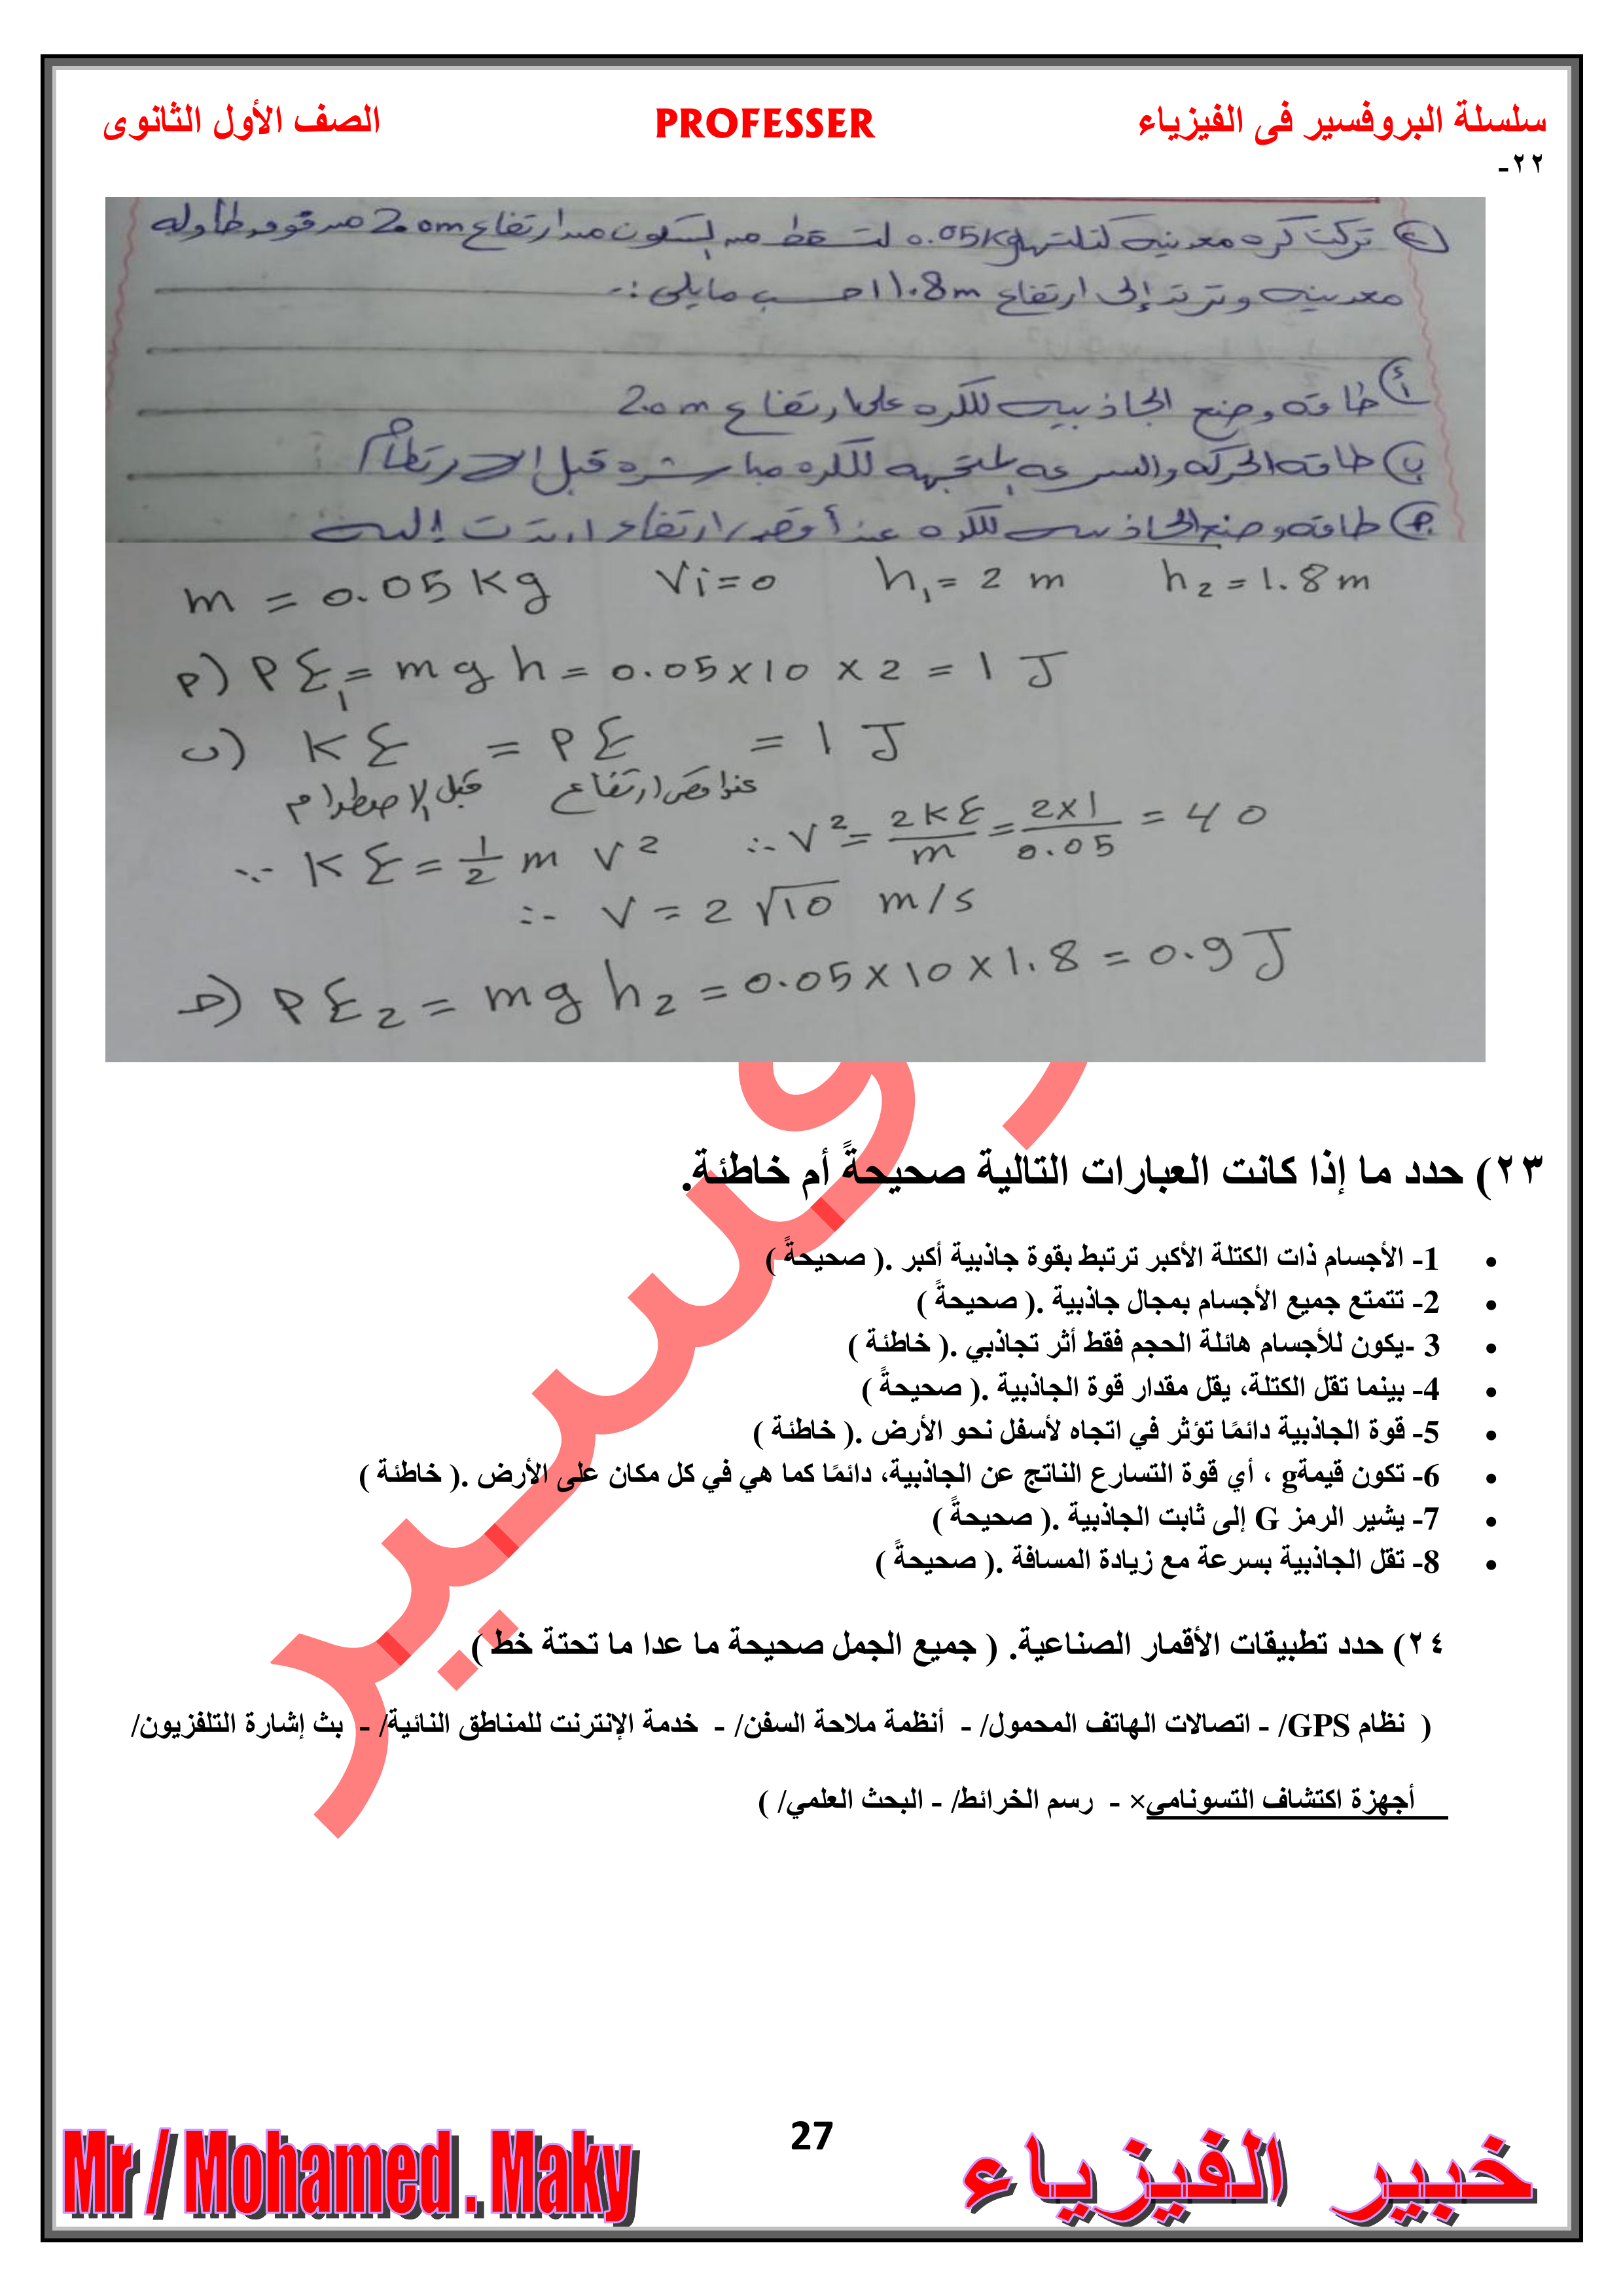 سلسلة البروفسير فى الفيزياء PROFESSER الصف الأول الثانوى
٢٢-
تركت كره معدنيه كتلتها 0.05Kg لتسقط من السكون من ارتفاع 2.0m من فوق طاوله
معدنيه وترتد إلى ارتفاع 1.8m احسب مايلى :-
أ) طاقه وضع الجاذبيه للكره على ارتفاع 2.0m
ب) طاقه الحركه والسرعه المتجهه للكره مباشره قبل الارتطام
ج) طاقه وضع الجاذبيه للكره عند أقصى ارتفاع ارتدت إليه
m = 0.05 Kg Vi = 0 h₁ = 2 m h₂ = 1.8 m
أ) PE₁ = m g h = 0.05 x 10 x 2 = 1 J
ب) KE = PE = 1 J
قبل الاصطدام عند اقصى ارتفاع
∵ KE = 1/2 m v² ∴ v² = 2KE/m = 2x1/0.05 = 40
∴ v = 2 √10 m/s
ج) PE₂ = mg h₂ = 0.05 x 10 x 1.8 = 0.9 J
بروفسير
٢٣) حدد ما إذا كانت العبارات التالية صحيحةً أم خاطئة.
• 1- الأجسام ذات الكتلة الأكبر ترتبط بقوة جاذبية أكبر .( صحيحةً )
• 2- تتمتع جميع الأجسام بمجال جاذبية .( صحيحةً )
• 3 -يكون للأجسام هائلة الحجم فقط أثر تجاذبي .( خاطئة )
• 4- بينما تقل الكتلة، يقل مقدار قوة الجاذبية .( صحيحةً )
• 5- قوة الجاذبية دائمًا تؤثر في اتجاه لأسفل نحو الأرض .( خاطئة )
• 6- تكون قيمةg ، أي قوة التسارع الناتج عن الجاذبية، دائمًا كما هي في كل مكان على الأرض .( خاطئة )
• 7- يشير الرمز G إلى ثابت الجاذبية .( صحيحةً )
• 8- تقل الجاذبية بسرعة مع زيادة المسافة .( صحيحةً )
٢٤) حدد تطبيقات الأقمار الصناعية. ( جميع الجمل صحيحة ما عدا ما تحتة خط )
( نظام GPS/ - اتصالات الهاتف المحمول/ - أنظمة ملاحة السفن/ - خدمة الإنترنت للمناطق النائية/ - بث إشارة التلفزيون/
أجهزة اكتشاف التسونامي× - رسم الخرائط/ - البحث العلمي/ )
خبير الفيزياء 27 Mr / Mohamed . Maky